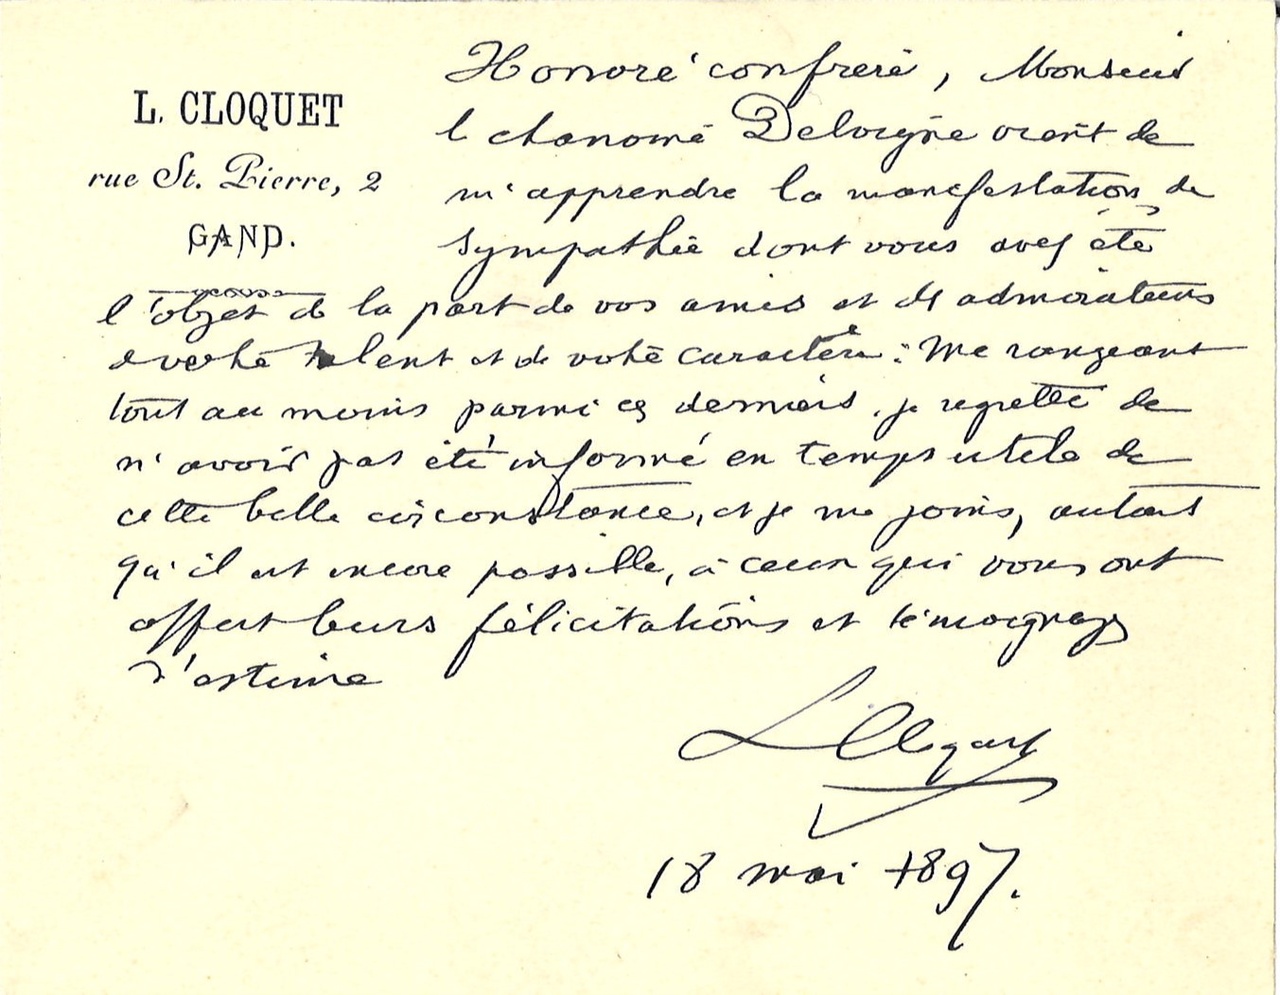 L. CLOQUET
rue St. Pierre, 2
GAND.
Honoré confrère, Monsieur
le chanoine Delvigne vient de
m'apprendre la manifestation de
sympathie dont vous avez été
l'objet de la part de vos amis et des admirateurs
de votre talent et de votre caractère. Me rangeant
tout au moins parmi ces derniers, je regrette de
n'avoir pas été informé en temps utile de
cette belle circonstance, et je me joins, autant
qu'il est encore possible, à ceux qui vous ont
offert leurs félicitations et témoignages
d'estime
L Cloquet
18 mai 1897.